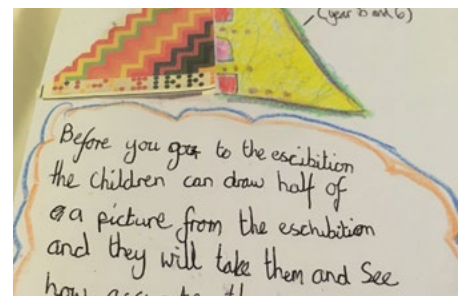 (year 5 and 6)
Before you go to the escibition
the children can draw half of
a picture from the eschibition
and they will take them and See
how accurate the